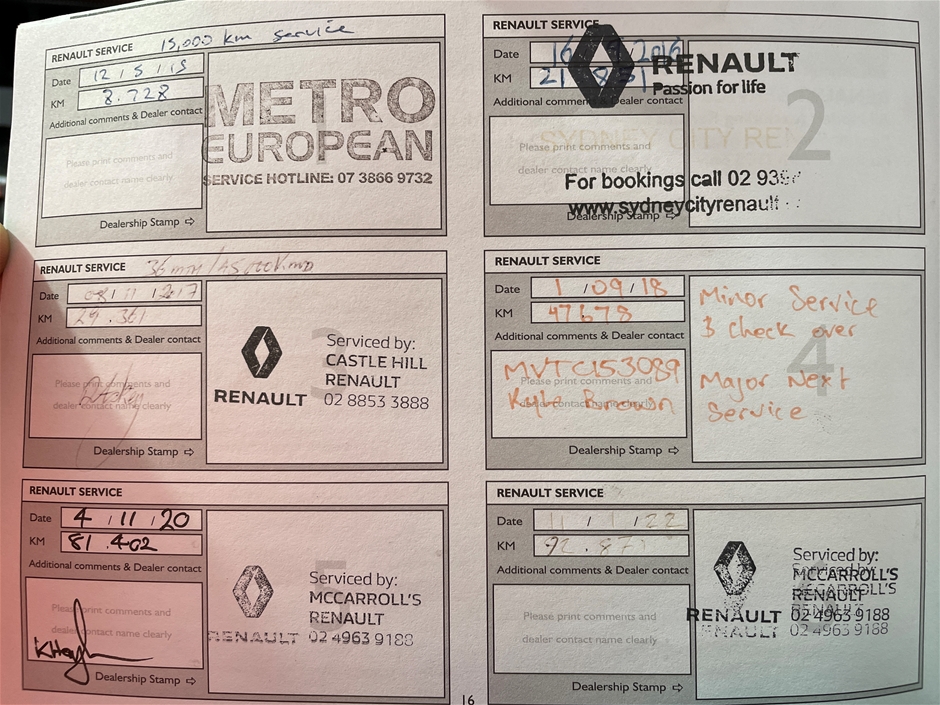 RENAULT SERVICE 15,000 km service
Date 12 / 5 / 15
KM 8.728
Additional comments & Dealer contact
Please print comments and
dealer contact name clearly
Dealership Stamp ⇨
METRO
EUROPEAN
SERVICE HOTLINE: 07 3866 9732
RENAULT SERVICE
Date 16 / / 2016
KM
Additional comments & Dealer contact
Please print comments and
dealer contact name clearly
Dealership Stamp ⇨
2
RENAULT
Passion for life
SYDNEY CITY REN
For bookings call 02 939
www.sydneycityrenault
RENAULT SERVICE
Date 08 / 11 / 2017
KM 29.361
Additional comments & Dealer contact
Please print comments and
dealer contact name clearly
Dealership Stamp ⇨
3
RENAULT
Serviced by:
CASTLE HILL
RENAULT
02 8853 3888
RENAULT SERVICE
Date 1 / 09 / 18
KM 47678
Additional comments & Dealer contact
Please print comments and
dealer contact name clearly
MVTC153089
Kyle Brown
Dealership Stamp ⇨
4
Minor Service
& Check over
Major Next
Service
RENAULT SERVICE
Date 4 / 11 / 20
KM 81.402
Additional comments & Dealer contact
Please print comments and
dealer contact name clearly
Dealership Stamp ⇨
5
RENAULT
Serviced by:
MCCARROLL'S
RENAULT
02 4963 9188
RENAULT SERVICE
Date 11 / 1 / 22
KM 92.87
Additional comments & Dealer contact
Please print comments and
dealer contact name clearly
Dealership Stamp ⇨
RENAULT
RENAULT
Serviced by:
Serviced by:
MCCARROLL'S
MCCARROLL'S
RENAULT
RENAULT
02 4963 9188
02 4963 9188
16